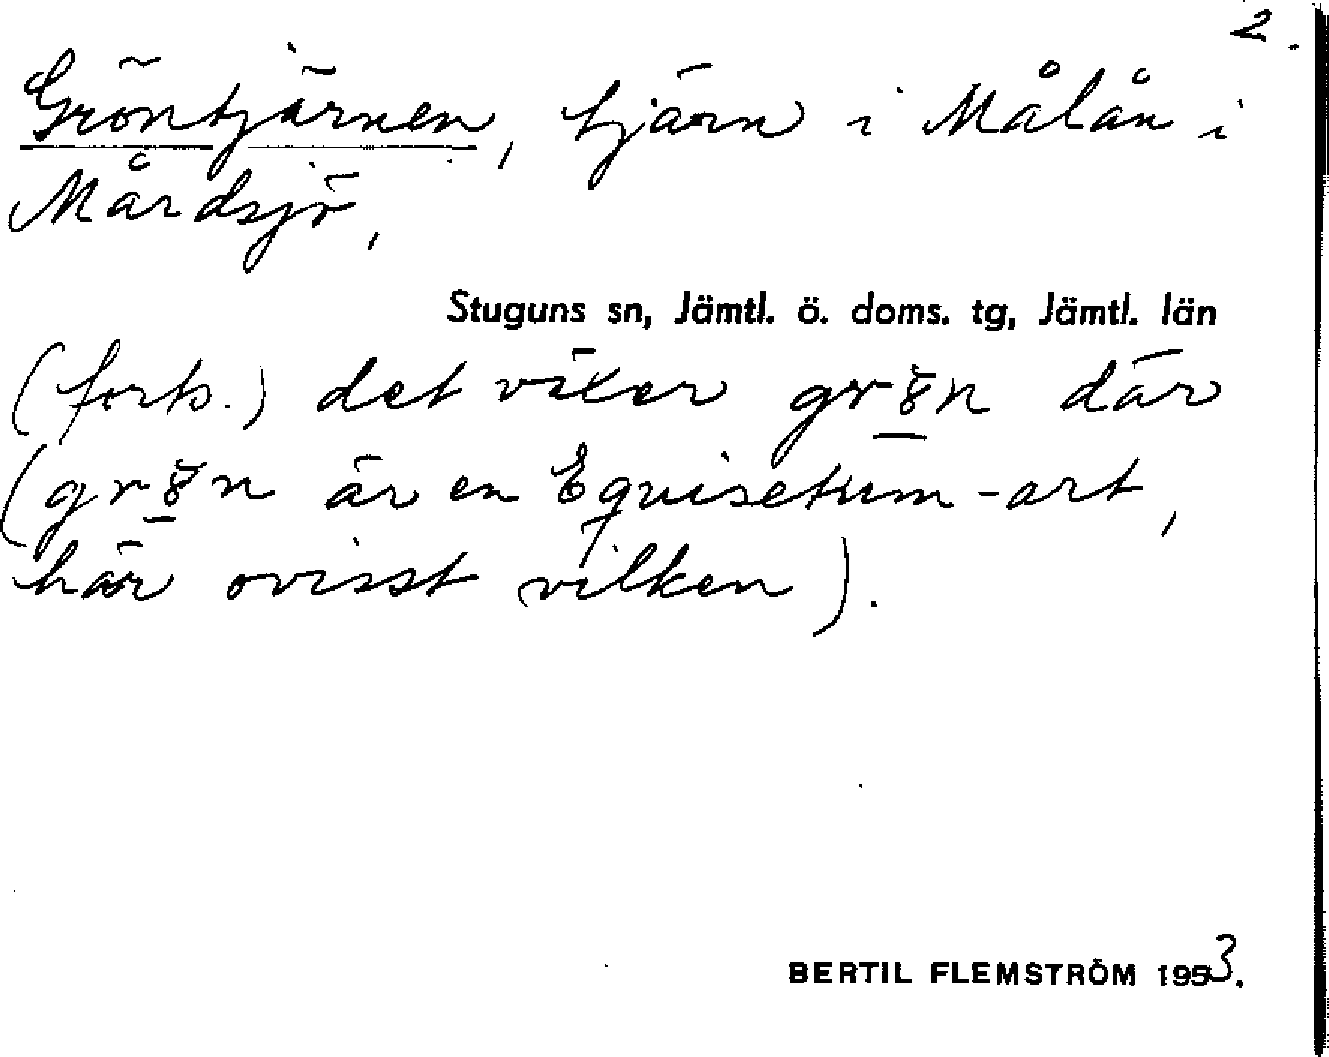 2.
Gröntjärnen, tjärn i Målån i
Mårdsjö,
Stuguns sn, Jämtl. ö. doms. tg, Jämtl. län
(forts.) det växer grön där
(grön är en Equisetum-art,
här ovisst vilken).
BERTIL FLEMSTRÖM 1953.